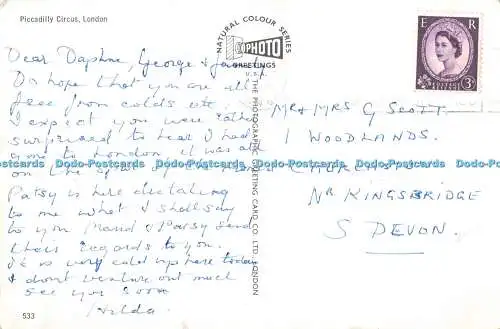 Piccadilly Circus, London
NATURAL COLOUR SERIES
PHOTO
GREETINGS
U.S.A.
E R
POSTAGE REVENUE
3D
THE PHOTOGRAPHIC GREETING CARD CO. LTD., LONDON
Dear Daphne, George &
Do hope that you are all
free from colds etc.
I expect you were rather
surprised to hear I had
gone to London it was all
on the
Patsy is here dictating
to me what I shall say
to you Maud & Patsy send
their regards to you.
It is very cold up here today
I dont venture out much
See you soon
Hilda.
MR & MRS G SCOTT.
1 WOODLANDS.
NR KINGSBRIDGE
S DEVON.
Dodo-Postcards Dodo-Postcards Dodo-Postcards Dodo-Postcards Dodo-Postcards
533